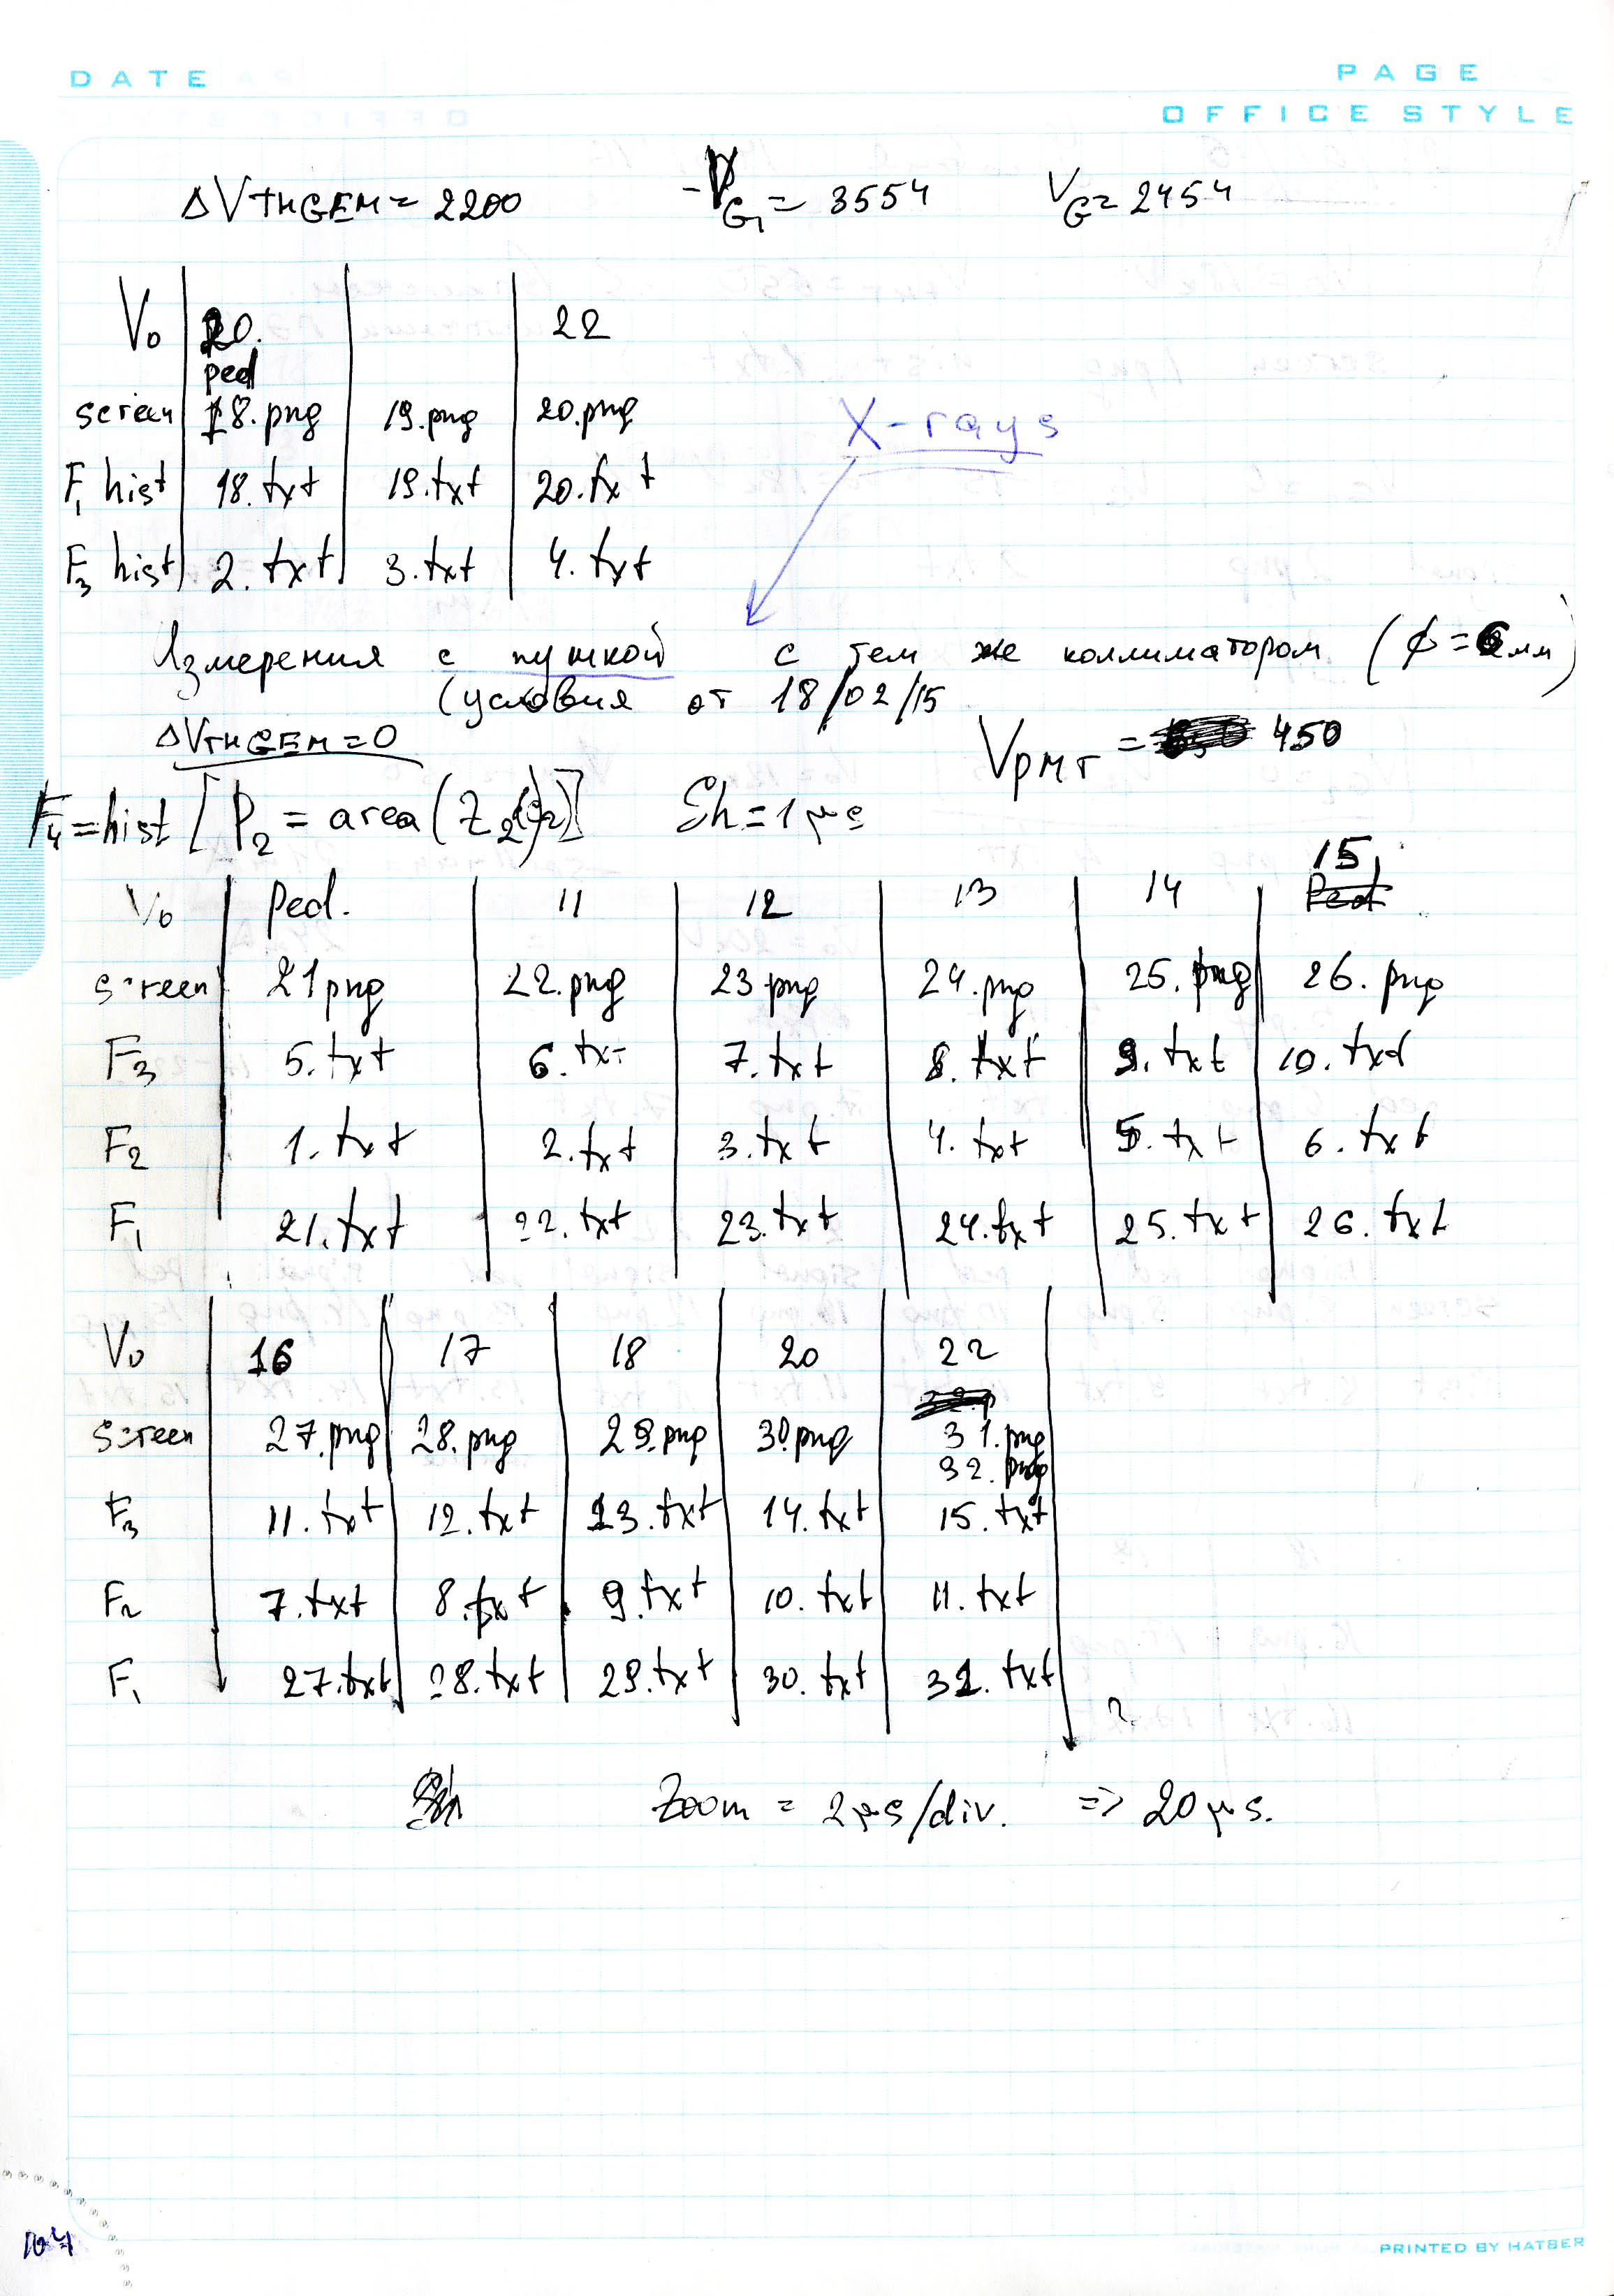 DATE
PAGE
OFFICE STYLE
ΔVTHGEM = 2200 -VG1 = 3554 VG = 2454
V0 20. 22
ped
screen 18.png 19.png 20.png
X-rays
F1 hist 18.txt 19.txt 20.txt
F3 hist 2.txt 3.txt 4.txt
Измерения с пушкой с тем же коллиматором (ϕ = 6мм)
(условия от 18/02/15
ΔVTHGEM = 0
VPMT = 450
F4 = hist [P2 = area(Z2)] Sh = 1 μs
15
V0 Ped. 11 12 13 14 Ped
screen 21png 22.png 23 png 24.png 25.png 26.png
F3 5.txt 6.txt 7.txt 8.txt 9.txt 10.txt
F2 1.txt 2.txt 3.txt 4.txt 5.txt 6.txt
F1 21.txt 22.txt 23.txt 24.txt 25.txt 26.txt
V0 16 17 18 20 22
screen 27.png 28.png 29.png 30png 31.png
32.png
F3 11.txt 12.txt 13.txt 14.txt 15.txt
F2 7.txt 8.txt 9.txt 10.txt 11.txt
F1 27.txt 28.txt 29.txt 30.txt 31.txt
Zoom = 2μs/div. => 20μs.
104
PRINTED BY HATBER